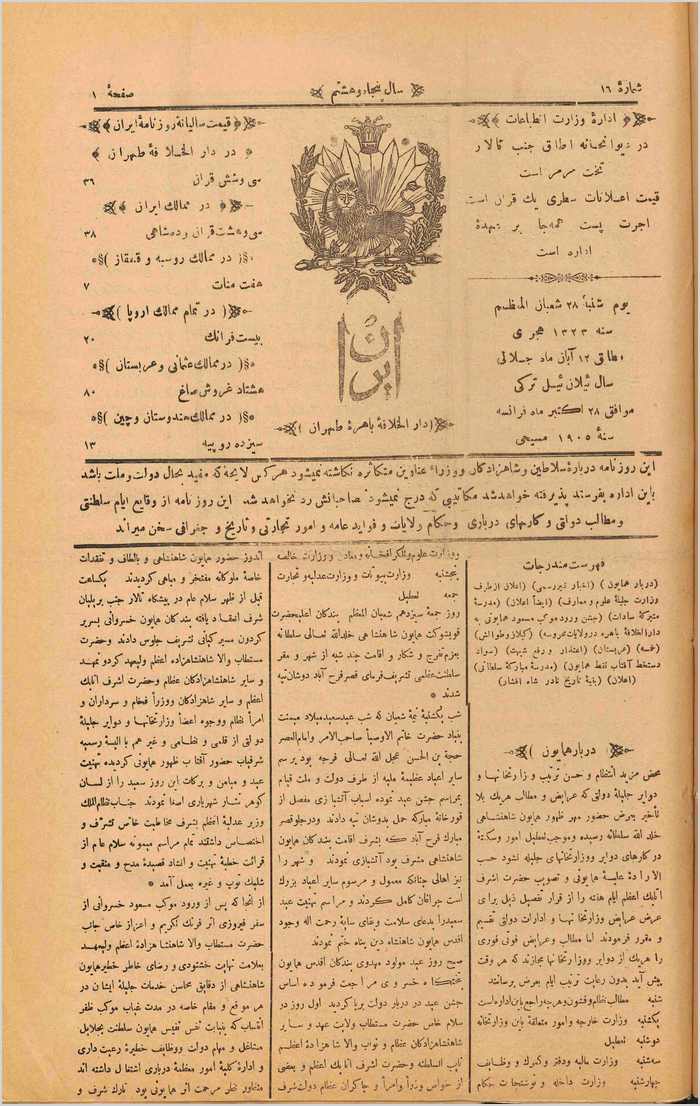 شمارهٔ ۱۶
سال پنجاه و هشتم
صفحهٔ ۱
ادارهٔ وزارت انطباعات
در دیوانخانه اطاق جنب تالار
تخت مرمر است
قیمت اعلانات سطری یک قران است
اجرت پست همه‌جا بر عهدهٔ
اداره است
یوم شنبهٔ ۲۸ شعبان المعظم
سنه ۱۳۲۳ هجری
مطابق ۱۲ آبان ماه جلالی
سال ئیلان ئیل ترکی
موافق ۲۸ اکتبر ماه فرانسه
سنهٔ ۱۹۰۵ مسیحی
ایران
(دار الخلافهٔ باهرهٔ طهران)
(قیمت سالیانهٔ روزنامهٔ ایران)
در دار الخلافهٔ طهران
سی و شش قران ۳۶
در ممالک ایران
سی و هشت قران و ده شاهی ۳۸
در ممالک روسیه و قفقاز
هفت منات ۷
(در تمام ممالک اروپا)
بیست فرانک ۲۰
(در ممالک عثمانی و عربستان)
هشتاد غروش صاغ ۸۰
(در ممالک هندوستان و چین)
سیزده روپیه ۱۳
این روزنامه دربارهٔ سلاطین و شاهزادگان و وزراء عناوین متکاثره نگاشته نمیشود هر کس لایحه که مفید بحال دولت و ملت باشد
باین اداره بفرستد پذیرفته خواهد شد مکاتیبی که درج نمیشود بصاحبانش رد نخواهد شد این روزنامه از وقایع ایام سلطنتی
و مطالب دولتی و کارهای درباری و حکام ولایات و فواید عامه و امور تجارتی و تاریخ و جغرافی سخن میراند
فهرست مندرجات
(دربار همایون) (اخبار غیر رسمی) (اعلان از طرف
وزارت جلیلهٔ علوم و معارف) (ایضاً اعلان) (مدرسهٔ
متبرکهٔ سادات) (جشن ورود موکب مسعود همایونی به
دار الخلافهٔ باهره در ولایات محروسه) (گیلان و طوالش)
(خمسه) (عربستان) (اعتذار و رفع شبهت) (سواد
دستخط آفتاب نقط همایون) (مدرسهٔ مبارکهٔ سلطانی)
(اعلان) (بقیهٔ تاریخ نادر شاه افشار)
دربار همایون
محض مزید انتظام و حسن ترتیب وزارتخانها و
دوایر جلیلهٔ دولتی که عرایض و مطالب هر یک بلا
تأخیر بعرض حضور مهر ظهور همایون شاهنشاهی
خلد الله سلطانه رسیده و موجب تعطیل امور و سکتهٔ
در کارهای دوایر و وزارتخانهای جلیله نشود حسب
الارادهٔ علیهٔ همایونی و تصویب حضرت اشرف
اتابک اعظم ایام هفته را از قرار تفصیل ذیل برای
عرض عرایض وزارتخانها و ادارات دولتی تقسیم
و مقرر فرمودند اما مطالب و عرایض فوتی فوری
را هر یک از دوایر و وزارتخانها مجازند که هر وقت
پیش آید بدون رعایت ترتیب ایام بعرض برسانند
شنبه مطالب نظام و قشون و هرچه راجع باین اداره است
یکشنبه وزارت خارجه و امور متعلقهٔ باین وزارتخانه
دوشنبه تعطیل
سه‌شنبه وزارت مالیه و دفتر و گمرک و وظایف
چهارشنبه وزارت داخله و نوشتجات حکام
وزارت علوم و تلگرافخانه و معادن و وزارت خالصه
پنجشنبه وزارت بیوتات و وزارت عدلیه و تجارت
جمعه تعطیل
روز جمعهٔ سیزدهم شعبان المعظم بندگان اعلیحضرت
قویشوکت همایون شاهنشاهی خلد الله تعالی سلطانه
بعزم تفرج و شکار و اقامت چند شبه از شهر و مقر
سلطنت عظمی تشریف فرمای قصر فرح آباد دوشان تپه
شدند
شب یکشنبهٔ نیمهٔ شعبان که شب عید سعید میلاد میمنت
بنیاد حضرت خاتم الاوصیا صاحب الامر و امام العصر
حجة بن الحسن عجل الله تعالی فرجه بود برسم
سایر اعیاد عظیمهٔ ملیه از طرف دولت و ملت قیام
بمراسم جشن عید نموده اسباب آتشبازی مفصل از
قورخانهٔ مبارکه حمل بدوشان تپه دادند و در جلو قصر
مبارک فرح آباد که بشرف اقامت بندگان همایون
شاهنشاهی مشرف بود آتشبازی نمودند و شهر را
نیز اهالی چنانکه معمول و مرسوم سایر اعیاد بزرگ
است چراغان کامل کردند و مراسم تهنیت عید
سعید را بدعای سلامت و بقای سایهٔ رحمت اله وجود
اقدس همایون شاهنشاه دین پناه ختم نمودند
صبح روز عید مولود مهدوی بندگان اقدس همایون
خسروی مراجعت فرموده اساس
جشن عید در دربار دولت برپا گردید اول روز در
سلام خاص حضرت مستطاب ولایت عهد و سایر
شاهنشاهزادگان عظام و نواب والا شاهزادهٔ اعظم
نایب السلطنه و حضرت اشرف اتابک اعظم و بعضی
از خواص وزراء و امراء و چاکران عظام دولت شرف
اندوز حضور همایون شاهنشاهی و بالطاف و تفقدات
خاصهٔ ملوکانه مفتخر و مباهی گردیدند یکساعت
قبل از ظهر سلام عام در پیشگاه تالار جنب برلیان
شرف انعقاد یافته بندگان همایون خسروانی بسریر
گردون مسیر کیانی تشریف جلوس دادند و حضرت
مستطاب والا شاهنشاهزاده اعظم ولیعهد گردو نمهد
و سایر شاهنشاهزادگان عظام و حضرت اشرف اتابک
اعظم و سایر شاهزادگان و وزراء فخام و سرداران و
امراء نظام و وجوه اعضاء وزارتخانها و دوایر جلیلهٔ
دولتی از قلمی و نظامی و غیر هم با البسهٔ رسمیه
شرفیاب حضور آفتاب ظهور همایونی گردیده تهنیت
عید و میامن و برکات این روز سعید را از لسان
گوهر نثار شهریاری اصغا نمودند جناب نظام الملک
وزیر عدلیهٔ اعظم بشرف مخاطبت خاص تشرف و
اختصاص داشتند تمام مراسم میمونهٔ سلام عام از
قرائت خطبهٔ تهنیت و انشاد قصیدهٔ مدح و منقبت و
شلیک توپ و غیره بعمل آمد
از آنجا که پس از ورود موکب مسعود خسروانی از
سفر فیروزی اثر فرنگ تکریم و اعزاز خاص جانب
حضرت مستطاب والا شاهنشاهزادهٔ اعظم ولیعهد
بعلامت نهایت خشنودی و رضای خاطر خطیر همایون
شاهنشاهی از دقایق محاسن خدمات جلیلهٔ ایشان در
هر موقع و مقام خاصه در مدت غیاب موکب ظفر
انتساب که بنیابت نفس نفیس همایون سلطنت بجلایل
مشاغل و مهام دولت و وظایف خطیرهٔ رعیت داری
و ادارهٔ کلیهٔ امور معظمهٔ درباری اشتغال داشته اند
منظور نظر مرحمت اثر همایونی بود تارک شرف و